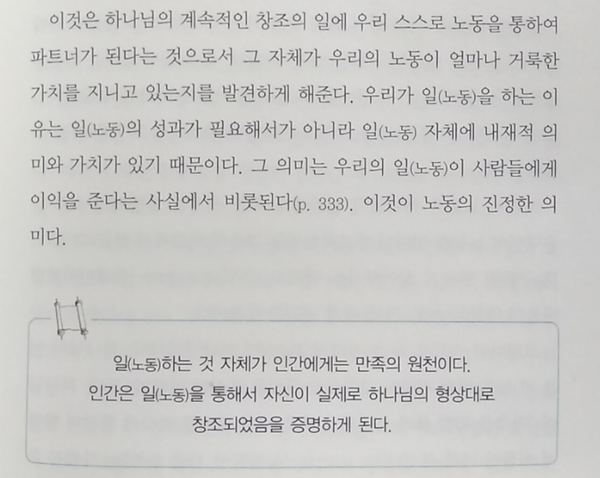 이것은 하나님의 계속적인 창조의 일에 우리 스스로 노동을 통하여
파트너가 된다는 것으로서 그 자체가 우리의 노동이 얼마나 거룩한
가치를 지니고 있는지를 발견하게 해준다. 우리가 일(노동)을 하는 이
유는 일(노동)의 성과가 필요해서가 아니라 일(노동) 자체에 내재적 의
미와 가치가 있기 때문이다. 그 의미는 우리의 일(노동)이 사람들에게
이익을 준다는 사실에서 비롯된다(p. 333). 이것이 노동의 진정한 의
미다.
일(노동)하는 것 자체가 인간에게는 만족의 원천이다.
인간은 일(노동)을 통해서 자신이 실제로 하나님의 형상대로
창조되었음을 증명하게 된다.